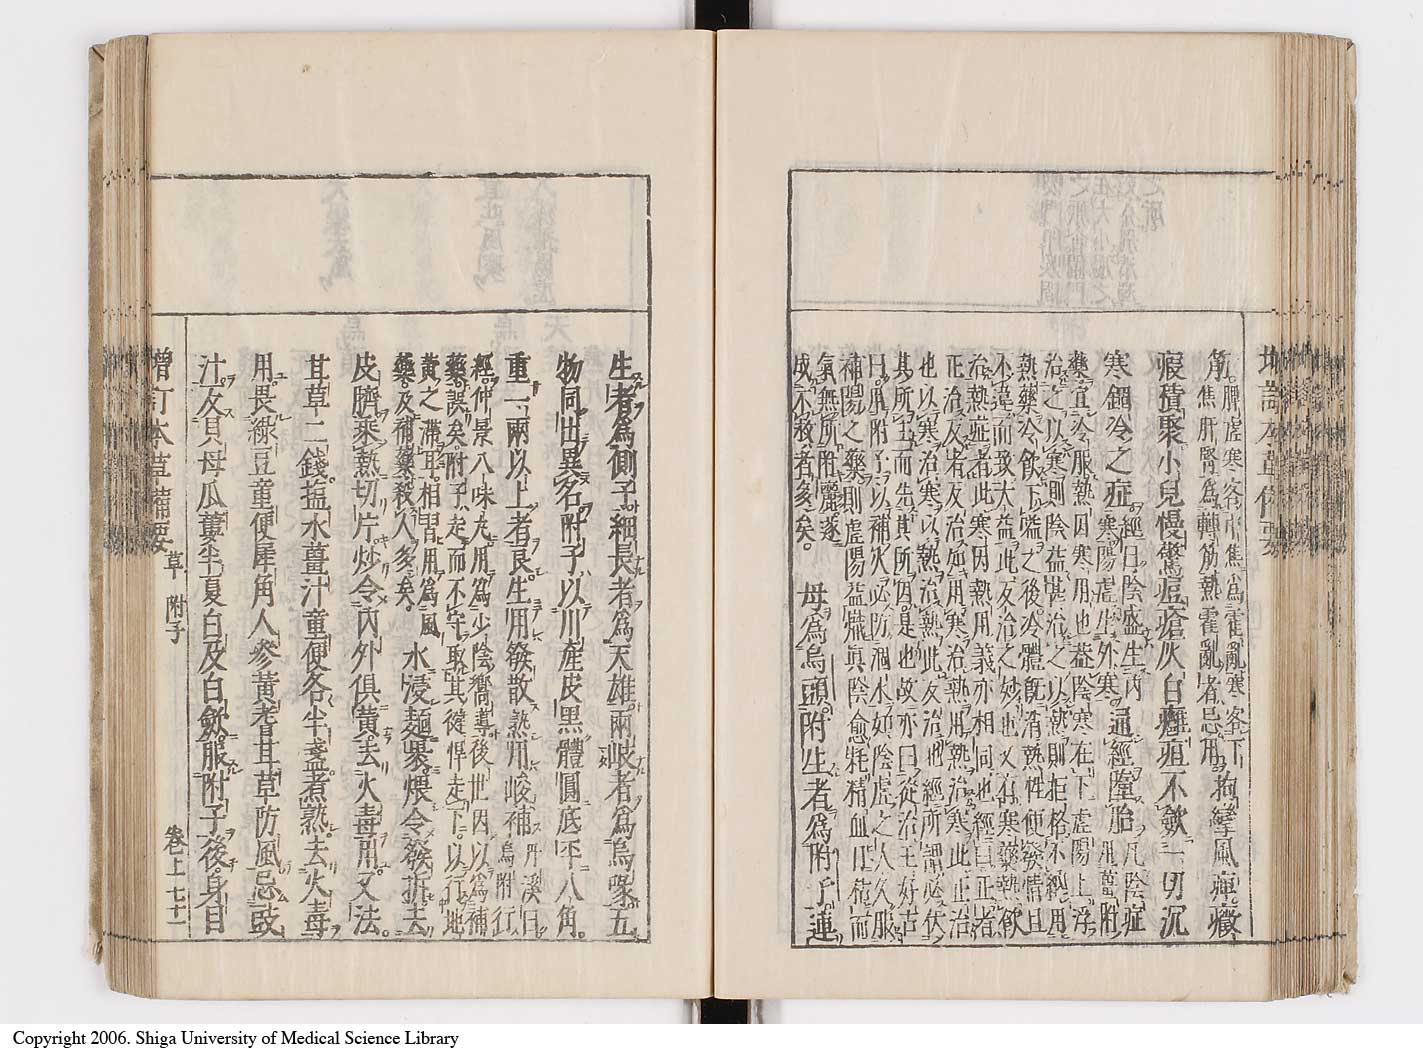 增訂本草備要
脾虛寒客中焦為霍亂寒客下
焦肝腎為轉筋熱霍亂者忌用 拘攣風痺癥
瘕積聚小兒慢驚痘瘡灰白癰疽不斂一切沉
寒錮冷之症 經曰陰盛生內寒陽虛生外寒 通經墮胎 凡陰症用薑附
藥宜冷服熱因寒用也蓋陰寒在下虛陽上浮
治之以寒則陰益甚治之以熱則拒格不納用
熱藥冷飲下嗌之後冷體既消熱性便發情且
不違而致大益此反治之妙也又有寒藥熱飲
治熱症者此寒因熱用義亦相同也經曰正者
正治反者反治如用寒治熱用熱治寒此正治
也以寒治寒以熱治熱此反治也經所謂必伏
其所主而先其所因是也故亦曰從治王好古
曰用附子以補火必防涸水如陰虛之人久服
補陽之藥則虛陽益熾真陰愈耗精血日枯而
氣無所附麗遂
成不救者多矣。 母為烏頭附生者為附子連
生者為側子細長者為天雄兩岐者為烏喙五
物同出異名附子以川產皮黑體圓底平八角
重一兩以上者良生用發散熟用峻補 丹溪曰烏附行
經仲景八味丸用為少陰嚮導後世因以為補
藥誤矣附子走而不守取其健悍走下以行地
黃之滯耳相習用為風
藥及補藥殺人多矣。 水浸麵裹煨令發拆去
皮臍乘熱切片炒令內外俱黃去火毒用又法
甘草二錢鹽水薑汁童便各半盞煮熟去火毒
用畏綠豆童便犀角人參黃耆甘草防風忌豉
汁反貝母瓜蔞半夏白及白斂服附子後身目
增訂本草備要 草 附子 卷上 七十一
Copyright 2006. Shiga University of Medical Science Library